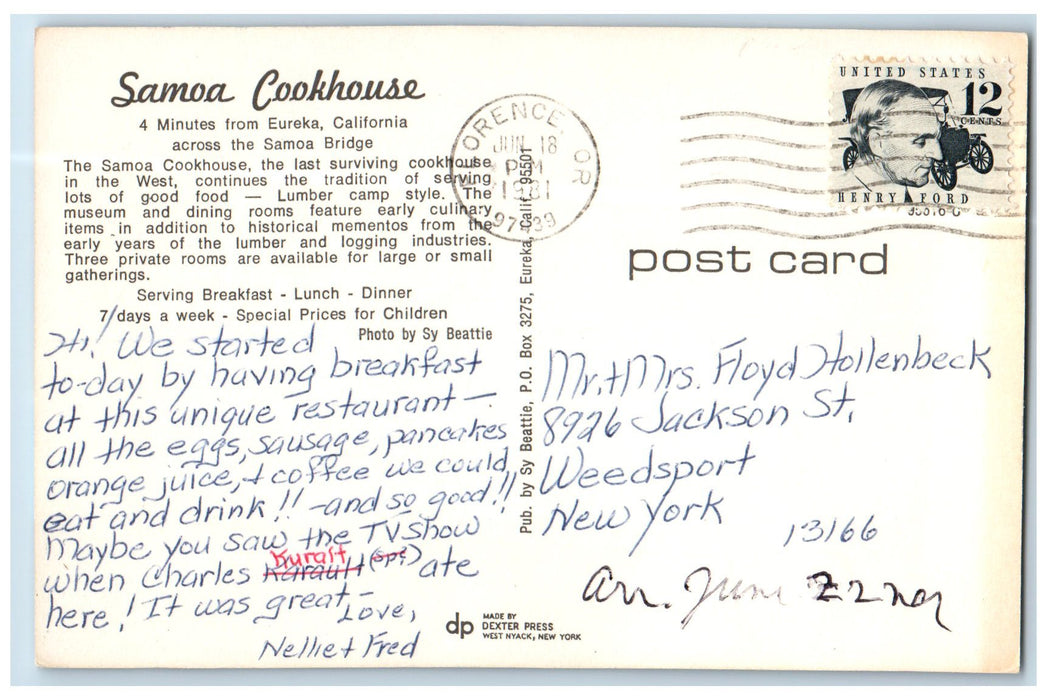 Samoa Cookhouse
4 Minutes from Eureka, California
across the Samoa Bridge
The Samoa Cookhouse, the last surviving cookhouse
in the West, continues the tradition of serving
lots of good food — Lumber camp style. The
museum and dining rooms feature early culinary
items in addition to historical mementos from the
early years of the lumber and logging industries.
Three private rooms are available for large or small
gatherings.
Serving Breakfast - Lunch - Dinner
7 days a week - Special Prices for Children
Photo by Sy Beattie
Hi! We started
to-day by having breakfast
at this unique restaurant —
all the eggs, sausage, pancakes
orange juice, + coffee we could
eat and drink!! - and so good!!
Maybe you saw the TV show
Kuralt
when Charles Karault (sp?) ate
here! It was great -
Love,
Nellie + Fred
Pub. by Sy Beattie, P.O. Box 3275, Eureka, Calif. 95501
dp
MADE BY
DEXTER PRESS
WEST NYACK, NEW YORK
ORENCE OR
JUN 18
PM
1981
97439
UNITED STATES
12
CENTS
HENRY FORD
post card
Mr. + Mrs. Floyd Hollenbeck
8926 Jackson St.
Weedsport
New York
13166
Arr. June 22